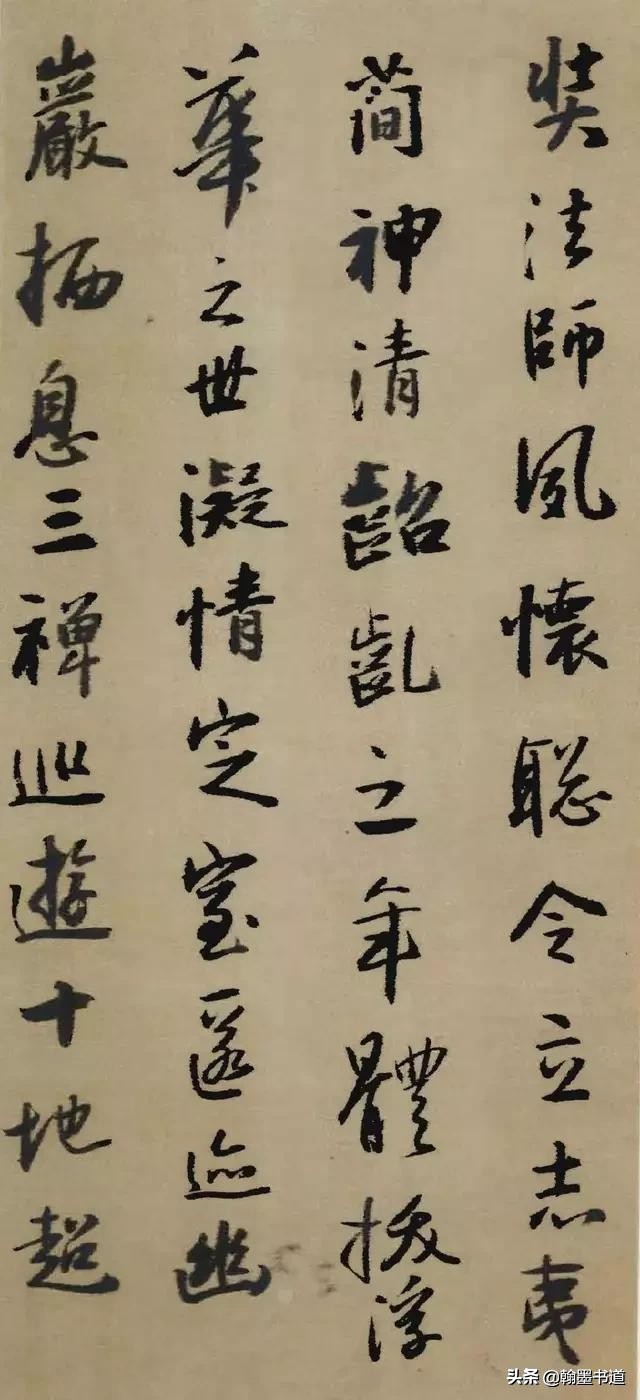 奘法師夙懷聡令立志夷
蕳神清齠齓之年體拔浮
華之世凝情定室匿迹幽
巖栖息三禪巡遊十地超
头条 @翰墨书道